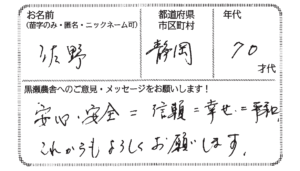 お名前
(苗字のみ・匿名・ニックネーム可)
都道府県
市区町村
年代
佐野
静岡
70
才代
黒瀬農舎へのご意見・メッセージをお願いします!
安心・安全=信頼=幸せ=平和
これからもよろしくお願いします。